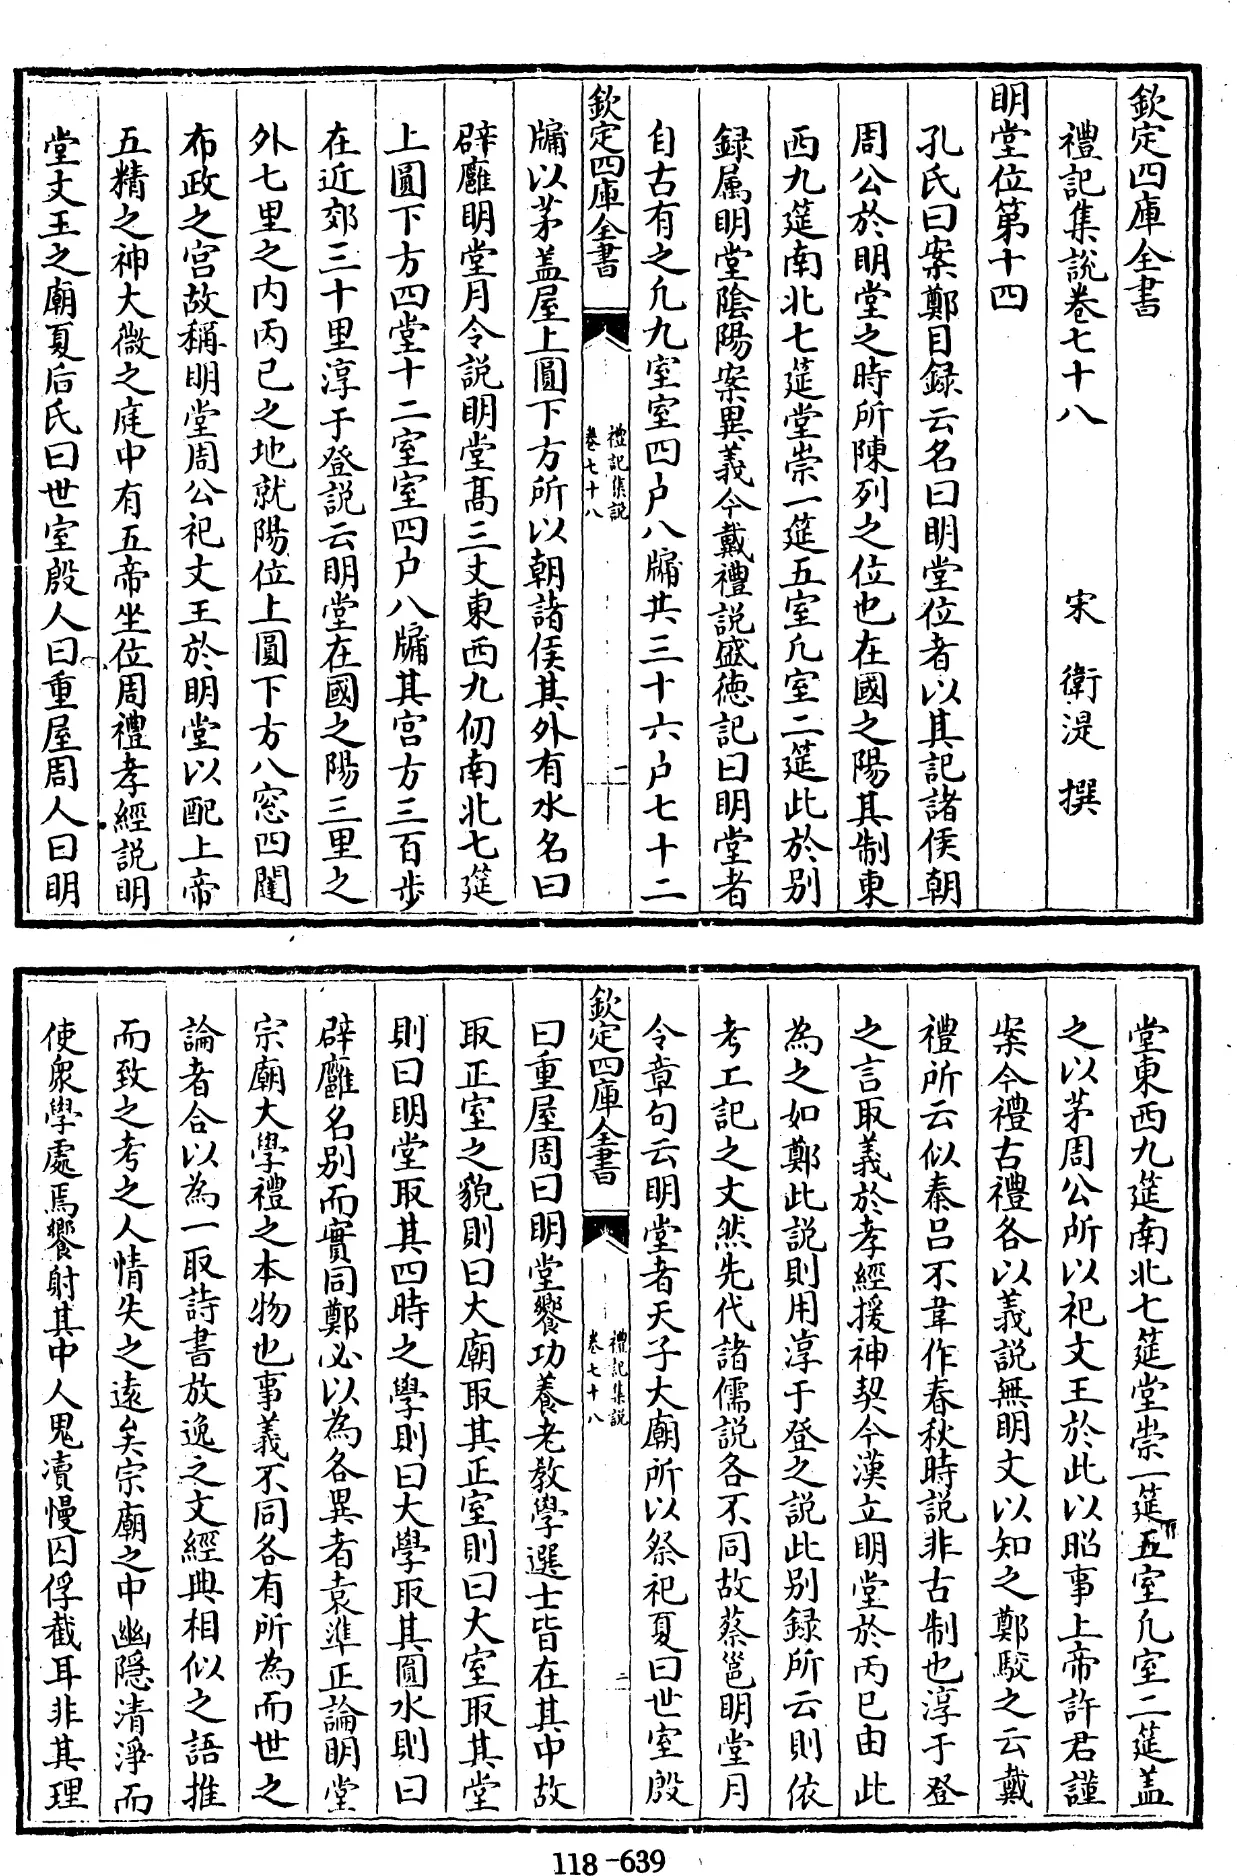 欽定四庫全書
禮記集說卷七十八
宋 衛湜 撰
明堂位第十四
孔氏曰案鄭目録云名曰明堂位者以其記諸侯朝
周公於明堂之時所陳列之位也在國之陽其制東
西九筵南北七筵堂崇一筵五室凡室二筵此於别
録屬明堂陰陽案異義今戴禮說盛徳記曰明堂者
自古有之凡九室室四户八牖共三十六户七十二
欽定四庫全書
禮記集說
卷七十八
一
牖以茅盖屋上圓下方所以朝諸侯其外有水名曰
辟廱明堂月令説明堂髙三丈東西九仞南北七筵
上圓下方四堂十二室室四户八牖其宫方三百步
在近郊三十里淳于登説云明堂在國之陽三里之
外七里之内丙己之地就陽位上圓下方八窓四闥
布政之宫故稱明堂周公祀文王於明堂以配上帝
五精之神大微之庭中有五帝坐位周禮孝經説明
堂文王之廟夏后氏曰世室殷人曰重屋周人曰明
堂東西九筵南北七筵堂崇一筵五室凡室二筵盖
之以茅周公所以祀文王於此以昭事上帝許君謹
案今禮古禮各以義説無明文以知之鄭駁之云戴
禮所云似秦吕不韋作春秋時説非古制也淳于登
之言取義於孝經援神契今漢立明堂於丙巳由此
為之如鄭此説則用淳于登之説此别録所云則依
考工記之文然先代諸儒説各不同故蔡邕明堂月
令章句云明堂者天子大廟所以祭祀夏曰世室殷
欽定四庫全書
禮記集説
卷七十八
二
曰重屋周曰明堂饗功養老教學選士皆在其中故
取正室之貌則曰大廟取其正室則曰大室取其堂
則曰明堂取其四時之學則曰大學取其圓水則曰
辟廱名别而實同鄭必以為各異者袁準正論明堂
宗廟大學禮之本物也事義不同各有所為而世之
論者合以為一取詩書放逸之文經典相似之語推
而致之考之人情失之逺矣宗廟之中幽隠清淨而
使衆學處焉饗射其中人鬼凟慢囚俘截耳非其理
118-639